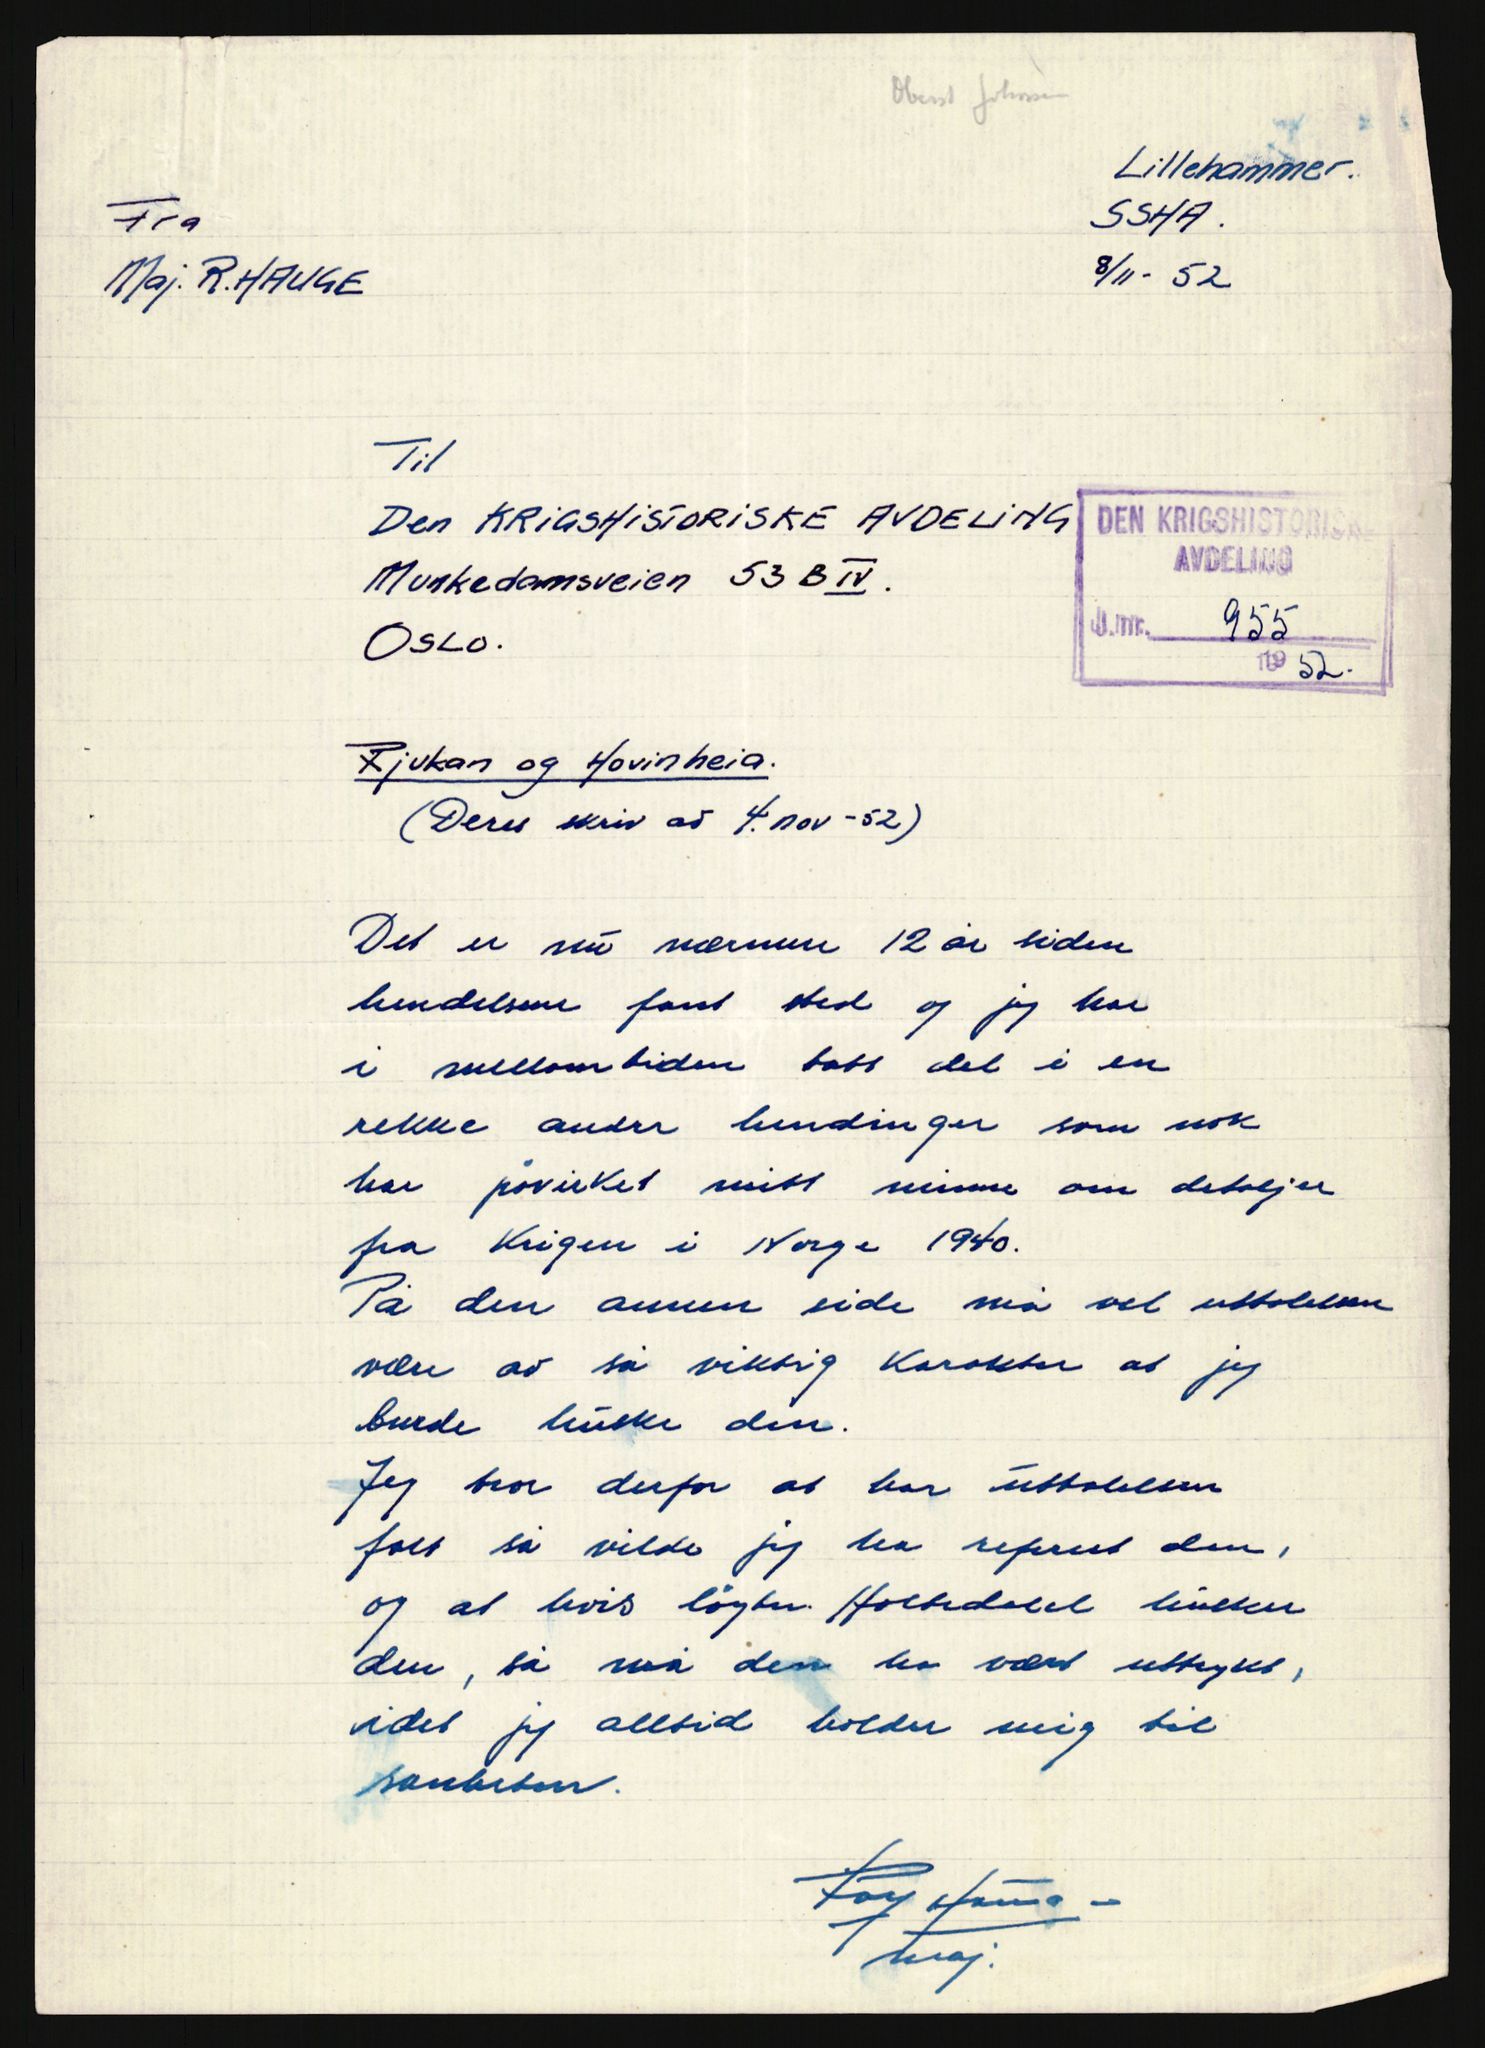 Oberst Johansen
Lillehammer.
SSHA.
8/11- 52
Fra
Maj. R. HAUGE
Til
Den KRIGSHISTORISKE AVDELING
Munkedamsveien 53 B IV.
OSLO.
DEN KRIGSHISTORISKE
AVDELING
J.nr. 955
19 52.
Rjukan og Hovinheia.
(Deres skriv av 4. nov -52)
Det er nu nærmere 12 år siden
hendelsene fant sted og jeg har
i mellomtiden tatt del i en
rekke andre hendinger som nok
har påvirket mitt minne om detaljer
fra Krigen i Norge 1940.
På den annen side må vel uttalelsen
være av så viktig karakter at jeg
burde huske den.
Jeg tror derfor at har uttalelsen
falt så vilde jeg ha referert den,
og at hvis löytn. Holtedahl husker
den, så må den ha vært uttrykt,
idet jeg alltid holder mig til
sanheten.
Roy Hauge
Maj.